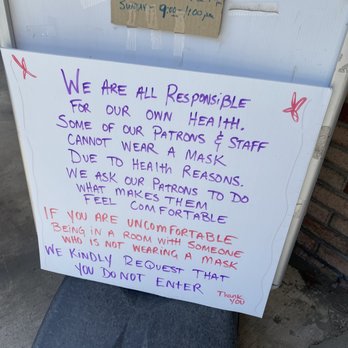 SUNDAY - 9:00 - 1:00 pm
WE ARE ALL RESPONSIBLE
FOR OUR OWN HEALTH.
SOME OF OUR PATRONS & STAFF
CANNOT WEAR A MASK
DUE TO HEALTH REASONS.
WE ASK OUR PATRONS TO DO
WHAT MAKES THEM
FEEL COMFORTABLE
IF YOU ARE UNCOMFORTABLE
BEING IN A ROOM WITH SOMEONE
WHO IS NOT WEARING A MASK
WE KINDLY REQUEST THAT
YOU DO NOT ENTER
THANK
YOU